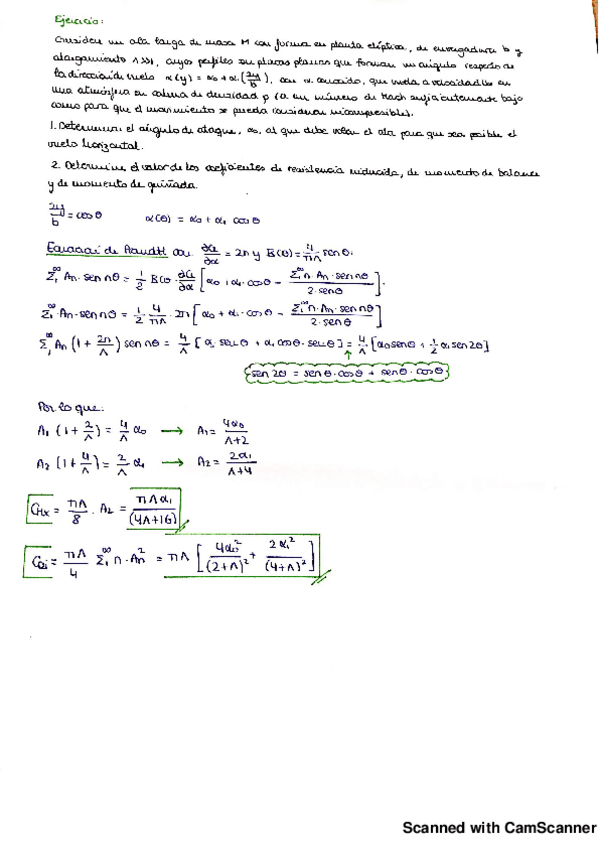 Ejercicio:
Considere un ala larga de masa M con forma en planta elíptica, de envergadura b y
alargamiento Λ>>1, cuyos perfiles son placas planas que forman un ángulo respecto de
la dirección de vuelo α(y) = α₀ + α₁(2y/b), con α₁ conocido, que vuela a velocidad U∞ en
una atmósfera en calma de densidad ρ (a un número de Mach suficientemente bajo
como para que el movimiento se pueda considerar incompresible).
1. Determinar el ángulo de ataque, α₀, al que debe volar el ala para que sea posible el
vuelo horizontal.
2. Determine el valor de los coeficientes de resistencia inducida, de momento de balance
y de momento de guiñada.
2y/b = cosθ α(θ) = α₀ + α₁ cosθ
Ecuación de Prandtl con ∂Cl/∂α = 2π y B(θ) = 4/πΛ senθ:
Σ₁^∞ An·sen nθ = 1/2 B(θ) ∂Cl/∂α [α₀ + α₁·cosθ − Σ₁^∞ n·An·sen nθ / 2·senθ].
Σ₁^∞ An·sen nθ = 1/2 · 4/πΛ · 2π [α₀ + α₁·cosθ − Σ₁^∞ n·An·sen nθ / 2 senθ]
Σ₁^∞ An (1 + 2n/Λ) sen nθ = 4/Λ [α₀ senθ + α₁ cosθ·senθ] = 4/Λ [α₀ senθ + 1/2 α₁ sen 2θ]
sen 2θ = senθ·cosθ + senθ·cosθ
Por lo que:
A₁ (1 + 2/Λ) = 4/Λ α₀ → A₁ = 4α₀/Λ+2
A₂ (1 + 4/Λ) = 2/Λ α₁ → A₂ = 2α₁/Λ+4
CMx = πΛ/8 · A₂ = πΛα₁/(4Λ+16)
CDi = πΛ/4 Σ₁^∞ n·An² = πΛ [4α₀²/(2+Λ)² + 2α₁²/(4+Λ)²]
Scanned with CamScanner